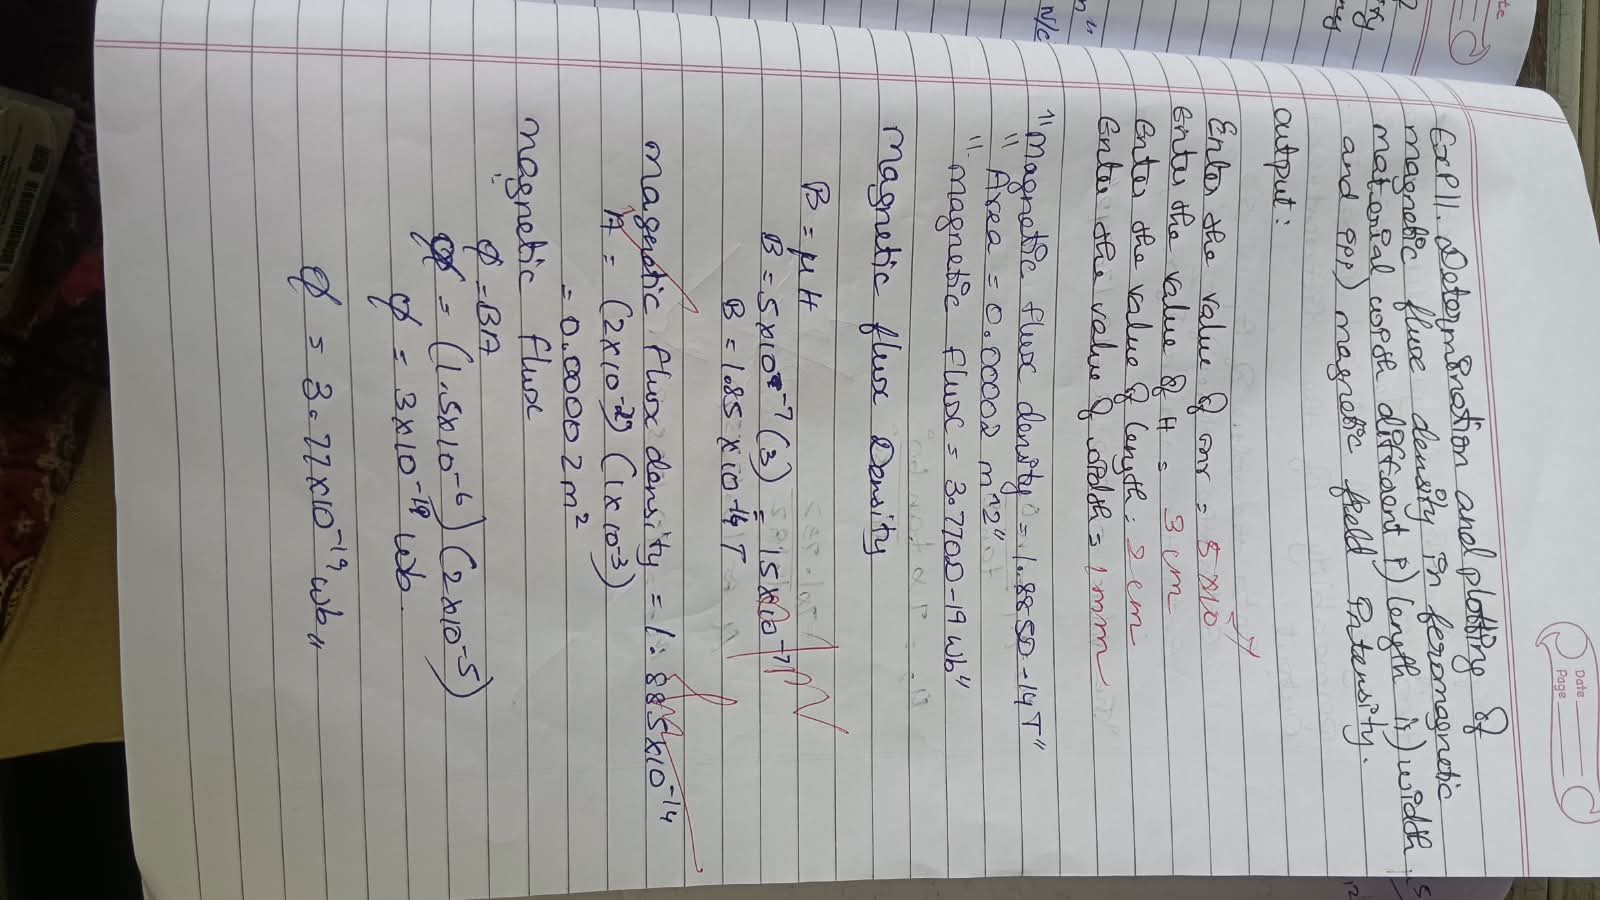 Date
Page
Exp11. Determination and plotting of
magnetic flux density in feromagnetic
material with different i) length ii) width
and iii) magnetic field Intensity.
output:
Enter the value of mr = 5x10^-7
Enter the value of H = 3 cm
Enter the value of length: 2 cm
Enter the value of width = 1 mm
"magnetic flux density = 1.885D-14T"
" Area = 0.00002 m^2"
" magnetic flux = 3.770D-19 wb"
magnetic flux Density
B = μH
B = 5x10^-7 (3) = 15x10^-7
B = 1.85 x 10^-14 T
magnetic flux density = 1.885x10^-14
A = (2x10^-2) (1x10^-3)
= 0.00002 m²
magnetic flux
φ = BA
φ = (1.5x10^-6) (2x10^-5)
φ = 3x10^-19 wb.
φ = 3.77x10^-19 wb"